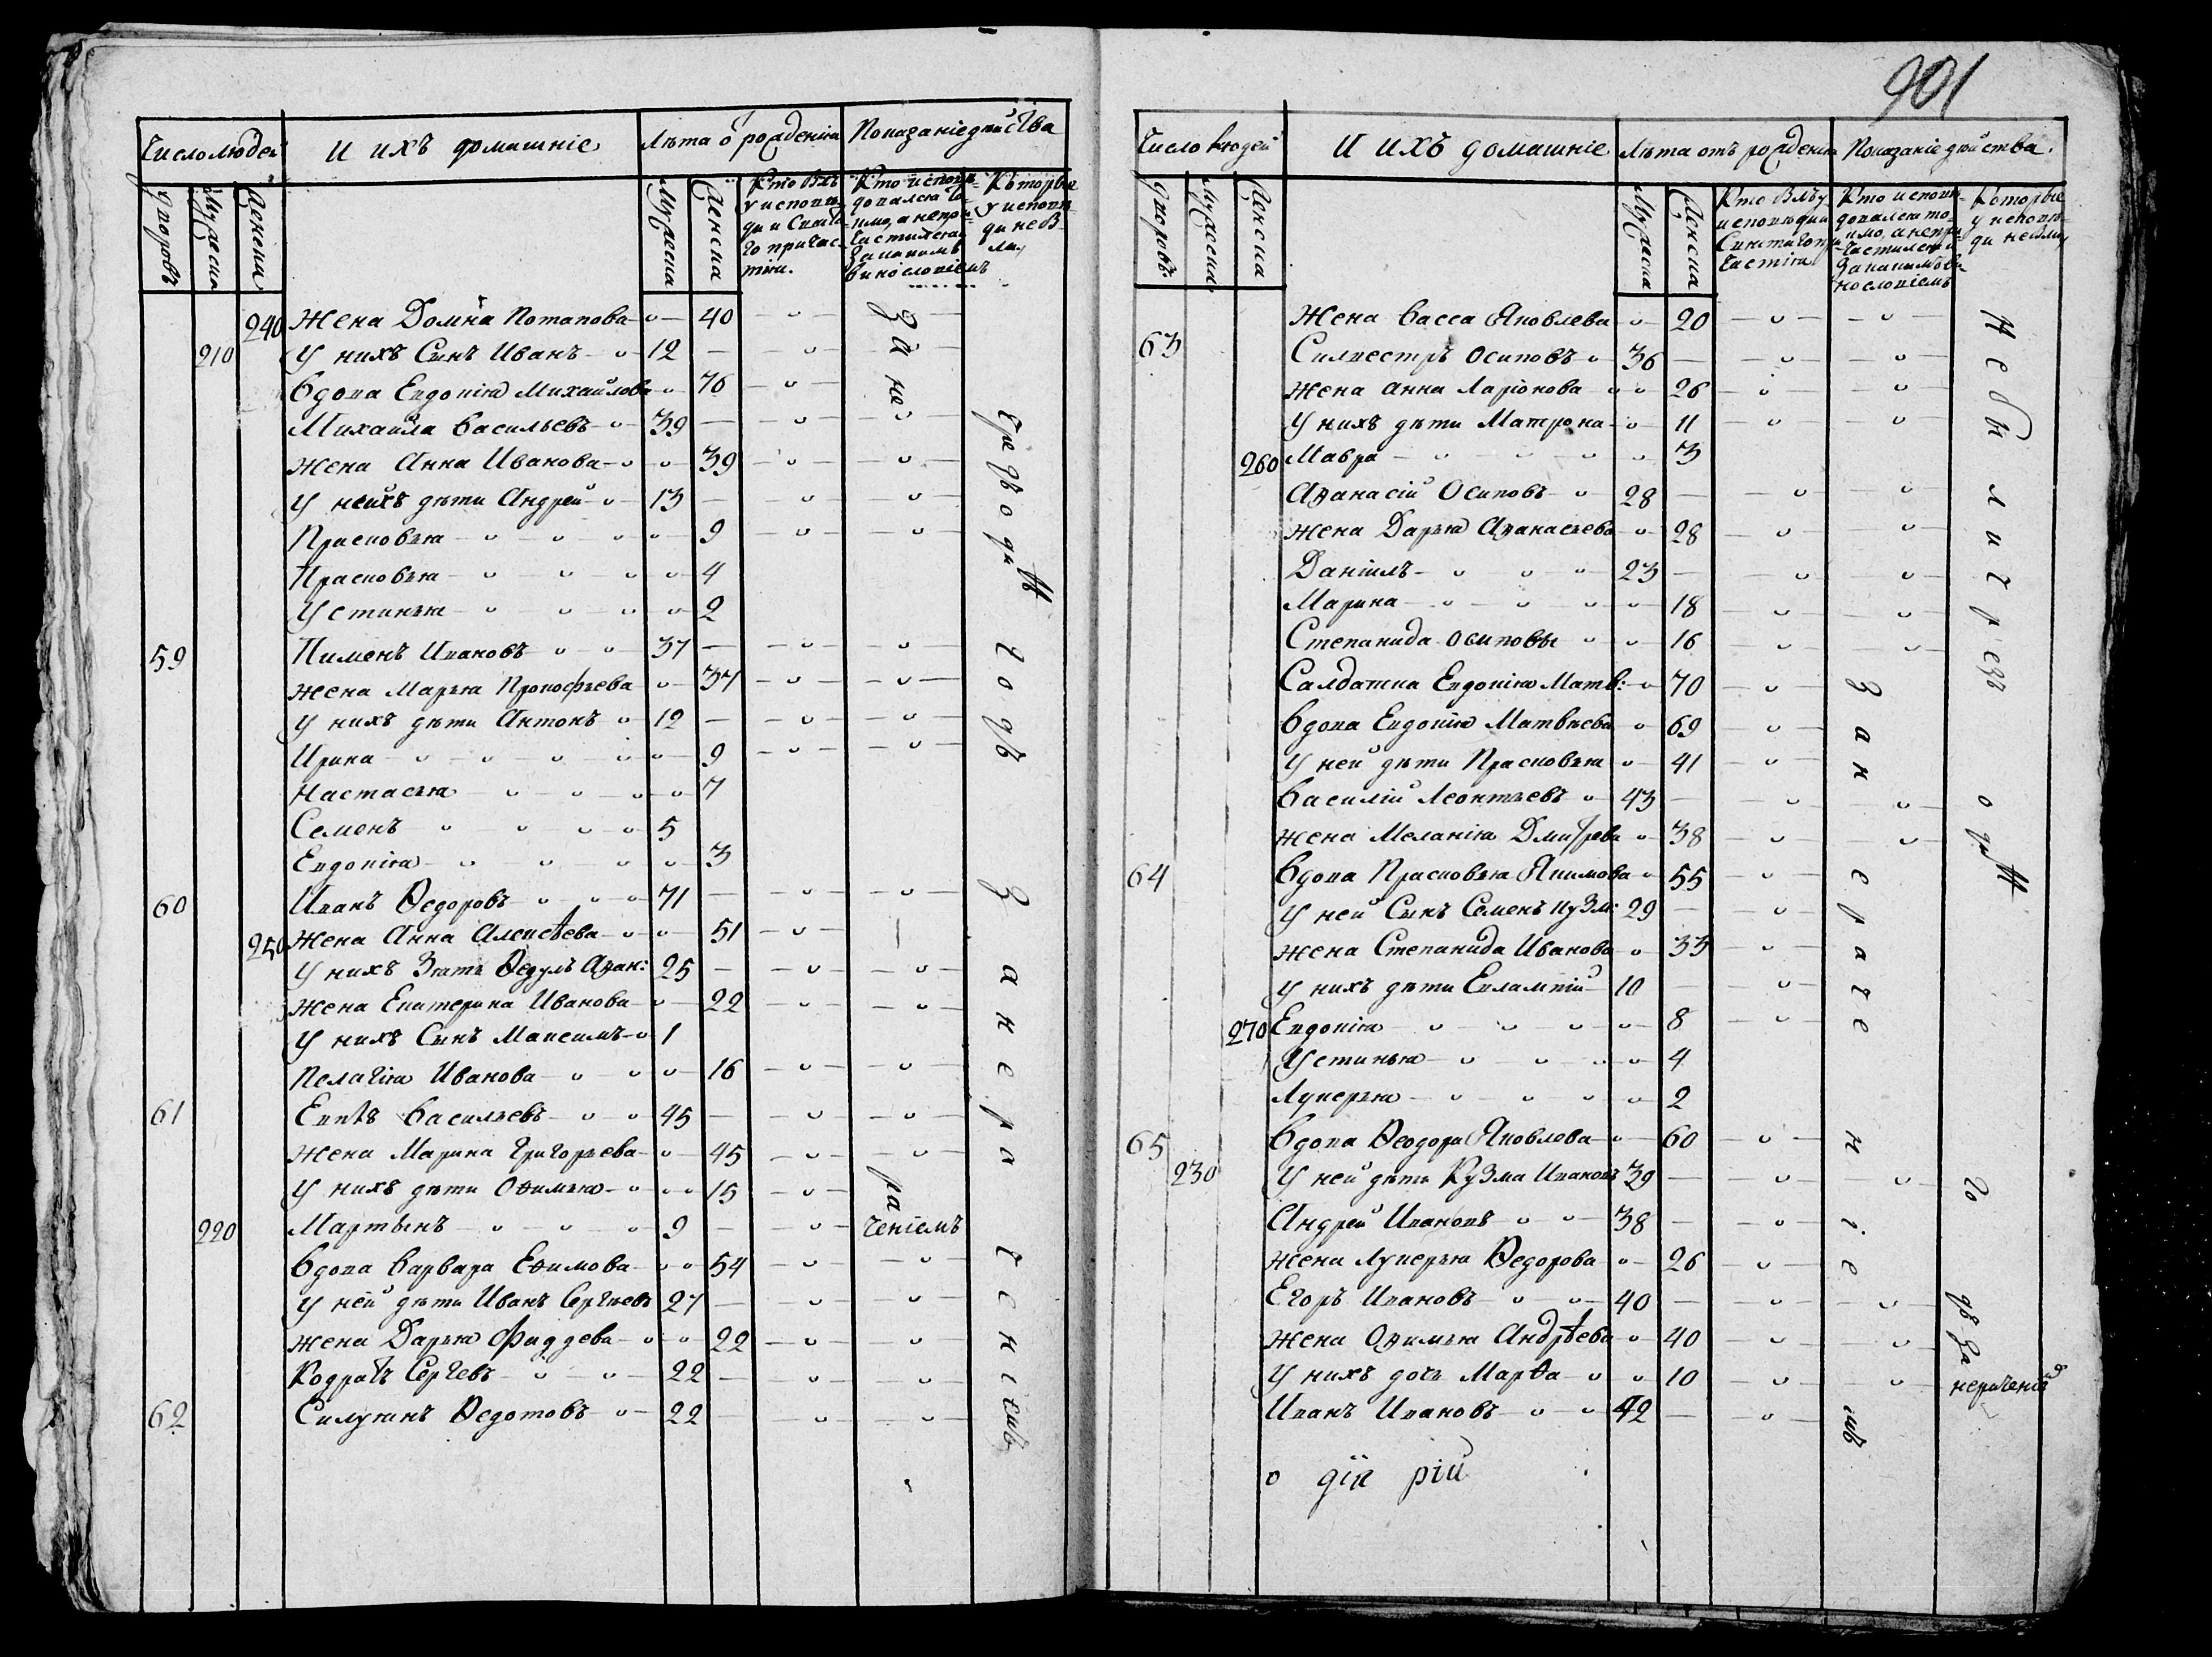 901
Число людей И ихъ домашніе Лѣта о рожденія Показаніе дѣйства
дворовъ Мужеска Женска Мужеска Женска Кто былъ у исповѣди и Святаго причастія. Кто исповѣдовался токмо, а не причастился и за какимъ винословіемъ Которые у исповѣди не были
240 Жена Домна Потапова 40
210 У нихъ Сынъ Иванъ 12
Вдова Евдокія Михайлова 76
Михайла Васильевъ 39
Жена Анна Иванова 39
У нихъ дѣти Андрей 13
Прасковья 9
Прасковья 4
Устинья 2
59 Пименъ Ивановъ 37
Жена Марья Прокофьева 37
У нихъ дѣти Антонъ 12
Ирина 9
Настасья 7
Семенъ 5
Евдокія 3
60 Иванъ Ѳедоровъ 71
250 Жена Анна Алексѣева 51
У нихъ Зять Ѳедулъ Аѳан: 25
Жена Екатерина Иванова 22
У нихъ Сынъ Максимъ 1
Пелагія Иванова 16
61 Васильевъ 45
Жена Марина Григорьева 45
У нихъ дѣти Офимья 15
220 Мартынъ 9
Вдова Варвара Ефимова 54
У ней дѣти Иванъ Сергѣевъ 27
Жена Дарья Фаддева 22
Кодратъ Сергевъ 22
62 Силуянъ Ѳедотовъ 22
за не
ра
ченіемъ
Число людей И ихъ домашніе Лѣта отъ рожденія Показаніе дѣйства.
дворовъ. Мужеска Женска Мужеска Женска Кто былъ у исповѣди и Святаго причастія Кто исповѣдовался токмо, а не причастился и за какимъ винословіемъ Которые у исповѣди не были
Жена Васса Яковлева 20
63 Силвестръ Осиповъ 36
Жена Анна Ларіонова 26
У нихъ дѣти Матрона 11
260 Мавра 3
Аѳанасій Осиповъ 28
Жена Дарья Аѳанасьева 28
Даніилъ 23
Марина 18
Степанида Осиповы 16
Салдатка Евдокія Матв: 70
Вдова Евдокія Матвѣева 69
У ней дѣти Прасковья 41
Василій Леонтьевъ 43
Жена Меланія Дмитрева 38
64 Вдова Прасковья Якимова 55
У ней Сынъ Семенъ Кузм: 29
Жена Степанида Иванова 33
У нихъ дѣти Евлампій 10
270 Евдокія 8
Устинья 4
Лукерья 2
65 Вдова Ѳеодора Яковлева 60
230 У ней дѣти Кузма Ивановъ 39
Андрей Ивановъ 38
Жена Лукерья Ѳедорова 26
Егоръ Ивановъ 40
Жена Офимья Андрѣева 40
У нихъ дочь Марѳа 10
Иванъ Ивановъ 42
за нерачениемъ
Не были чрезъ одинъ годъ за нераченіе